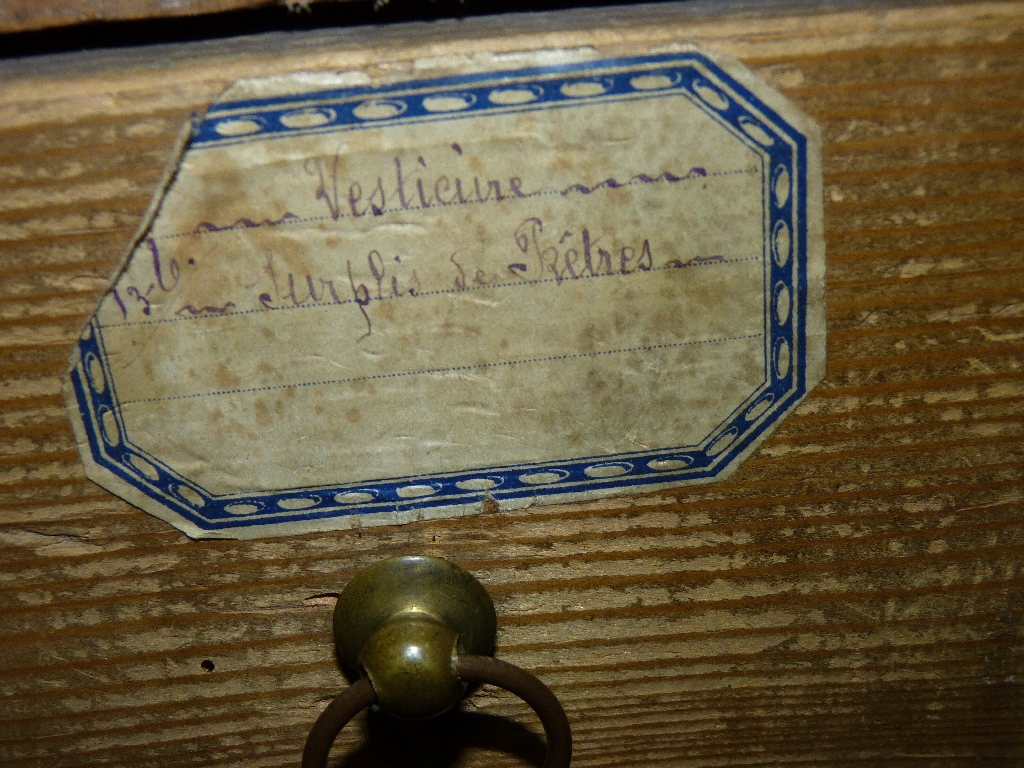 Vesticure
13-6. Surplis de Prêtres